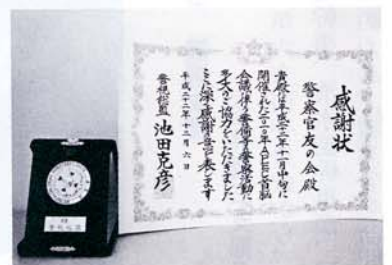 感謝状
警察官友の会殿
貴殿は平成二十二年十一月中旬に
開催された二〇一〇年APEC首脳
会議に伴う警備等警察活動に
多大のご協力をいただきました
ここに深く感謝の意を表します
平成二十二年十二月六日
警視総監 池田克彦